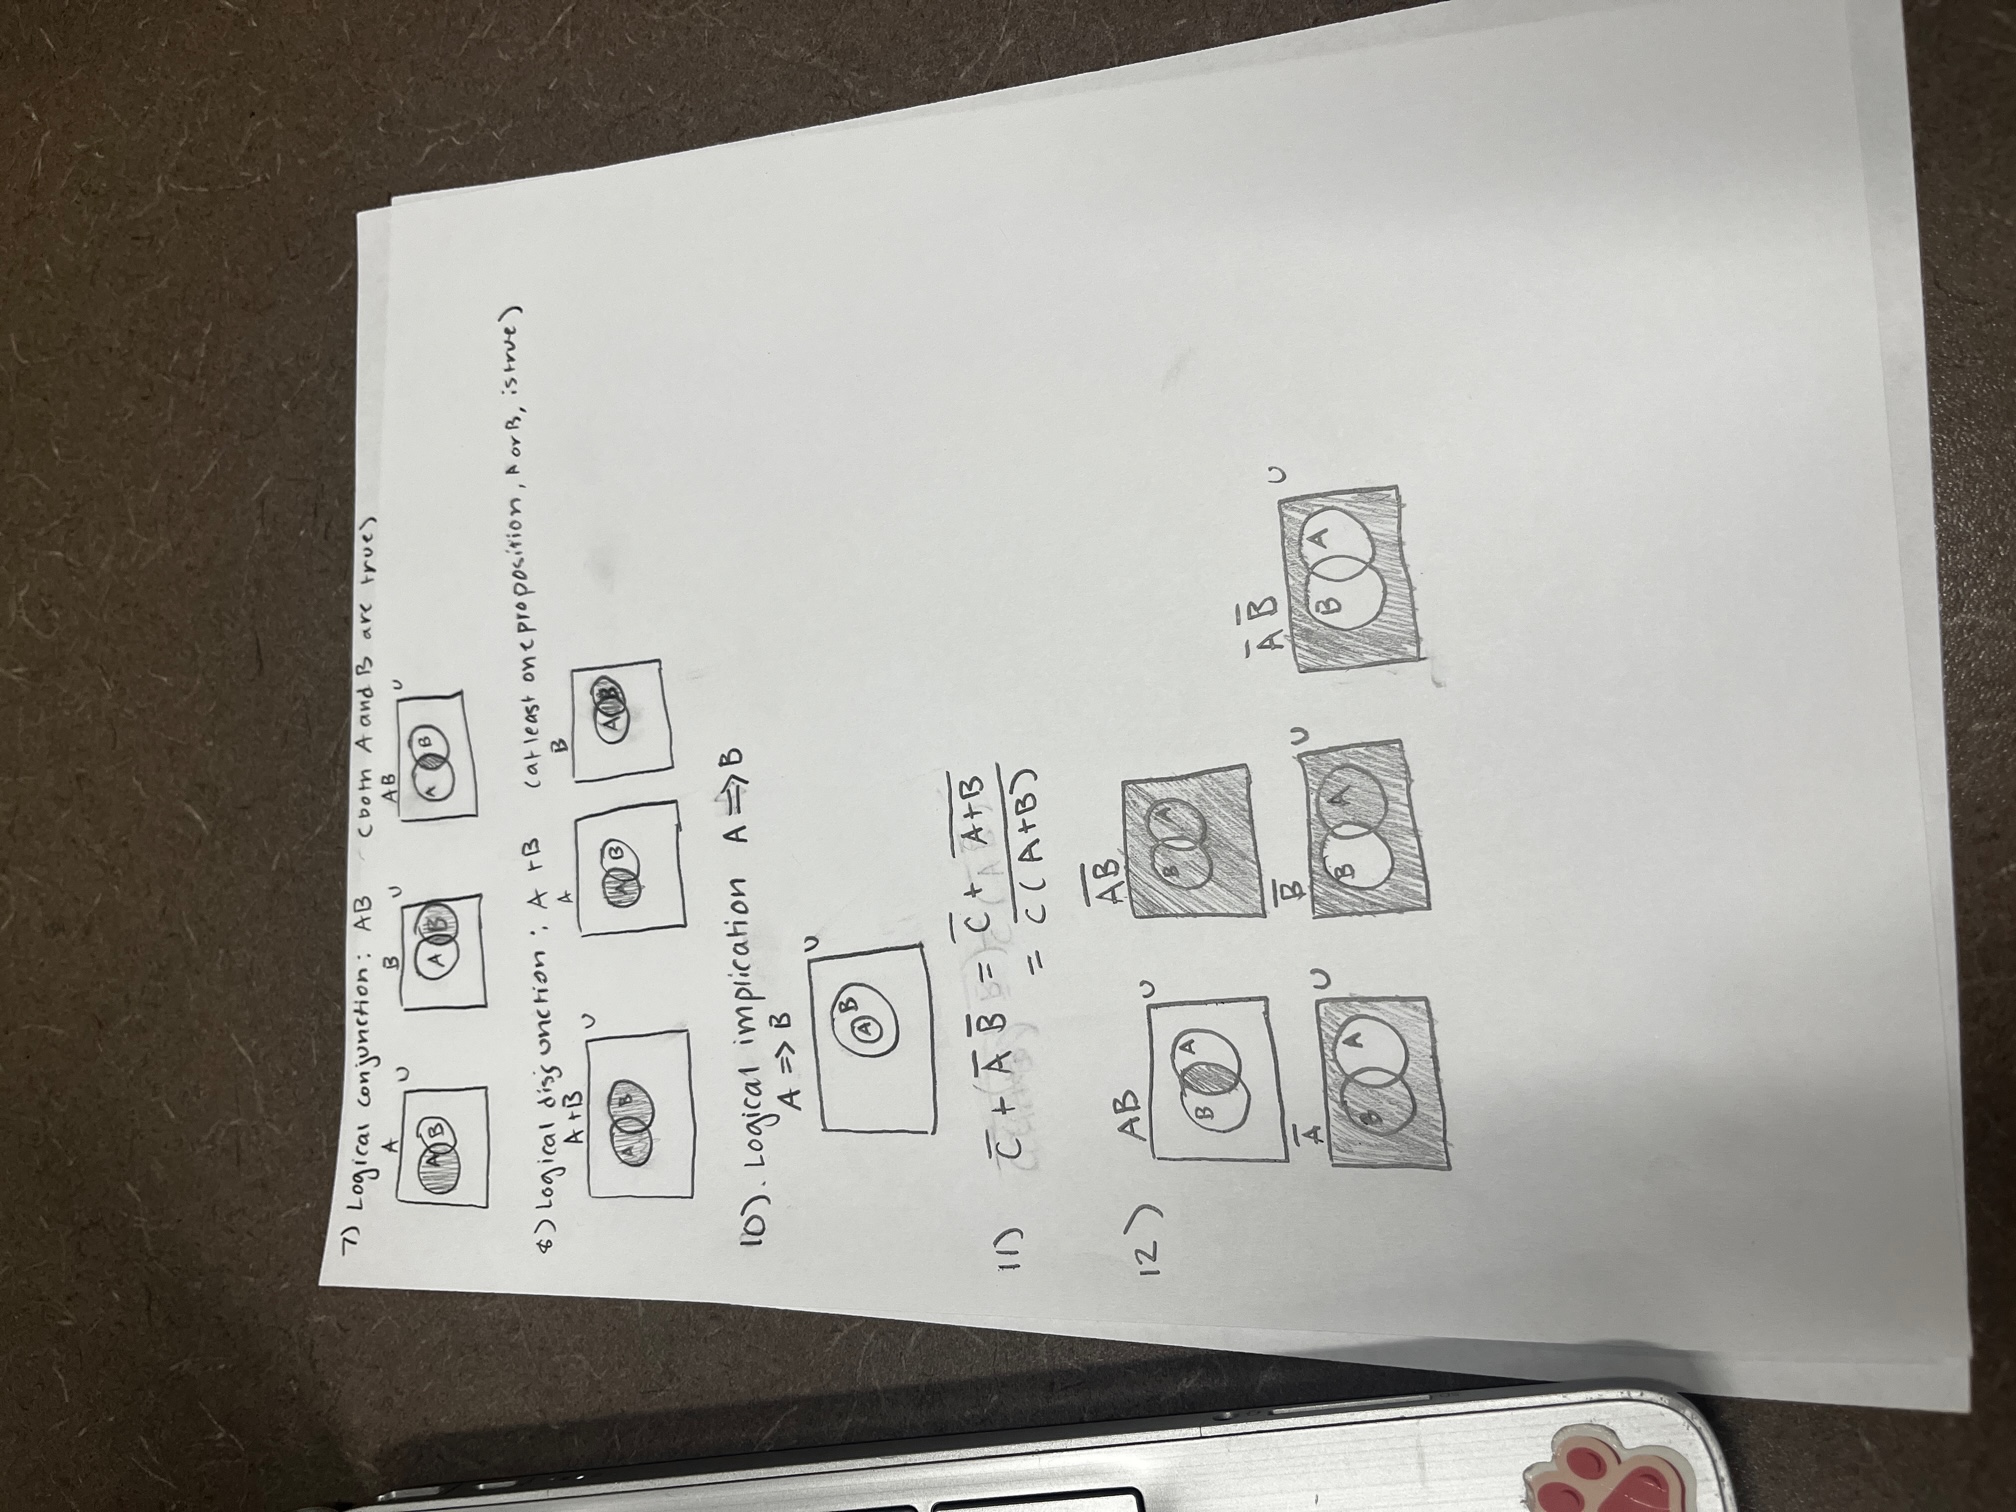 7) Logical conjunction: AB (both A and B are true)
A U B U AB U
A B A B A B
8) Logical disjunction: A + B (at least one proposition, A or B, is true)
A+B U A B
A B A B A B
10). Logical implication A ⇒ B
A ⇒ B
U
A B
11) C̅ + A̅ B̅ = C̅ + \overline{A+B}
= \overline{C(A+B)}
12) AB U \overline{AB}
B A B A
A̅ U B̅ U A̅ B̅ U
B A B A B A